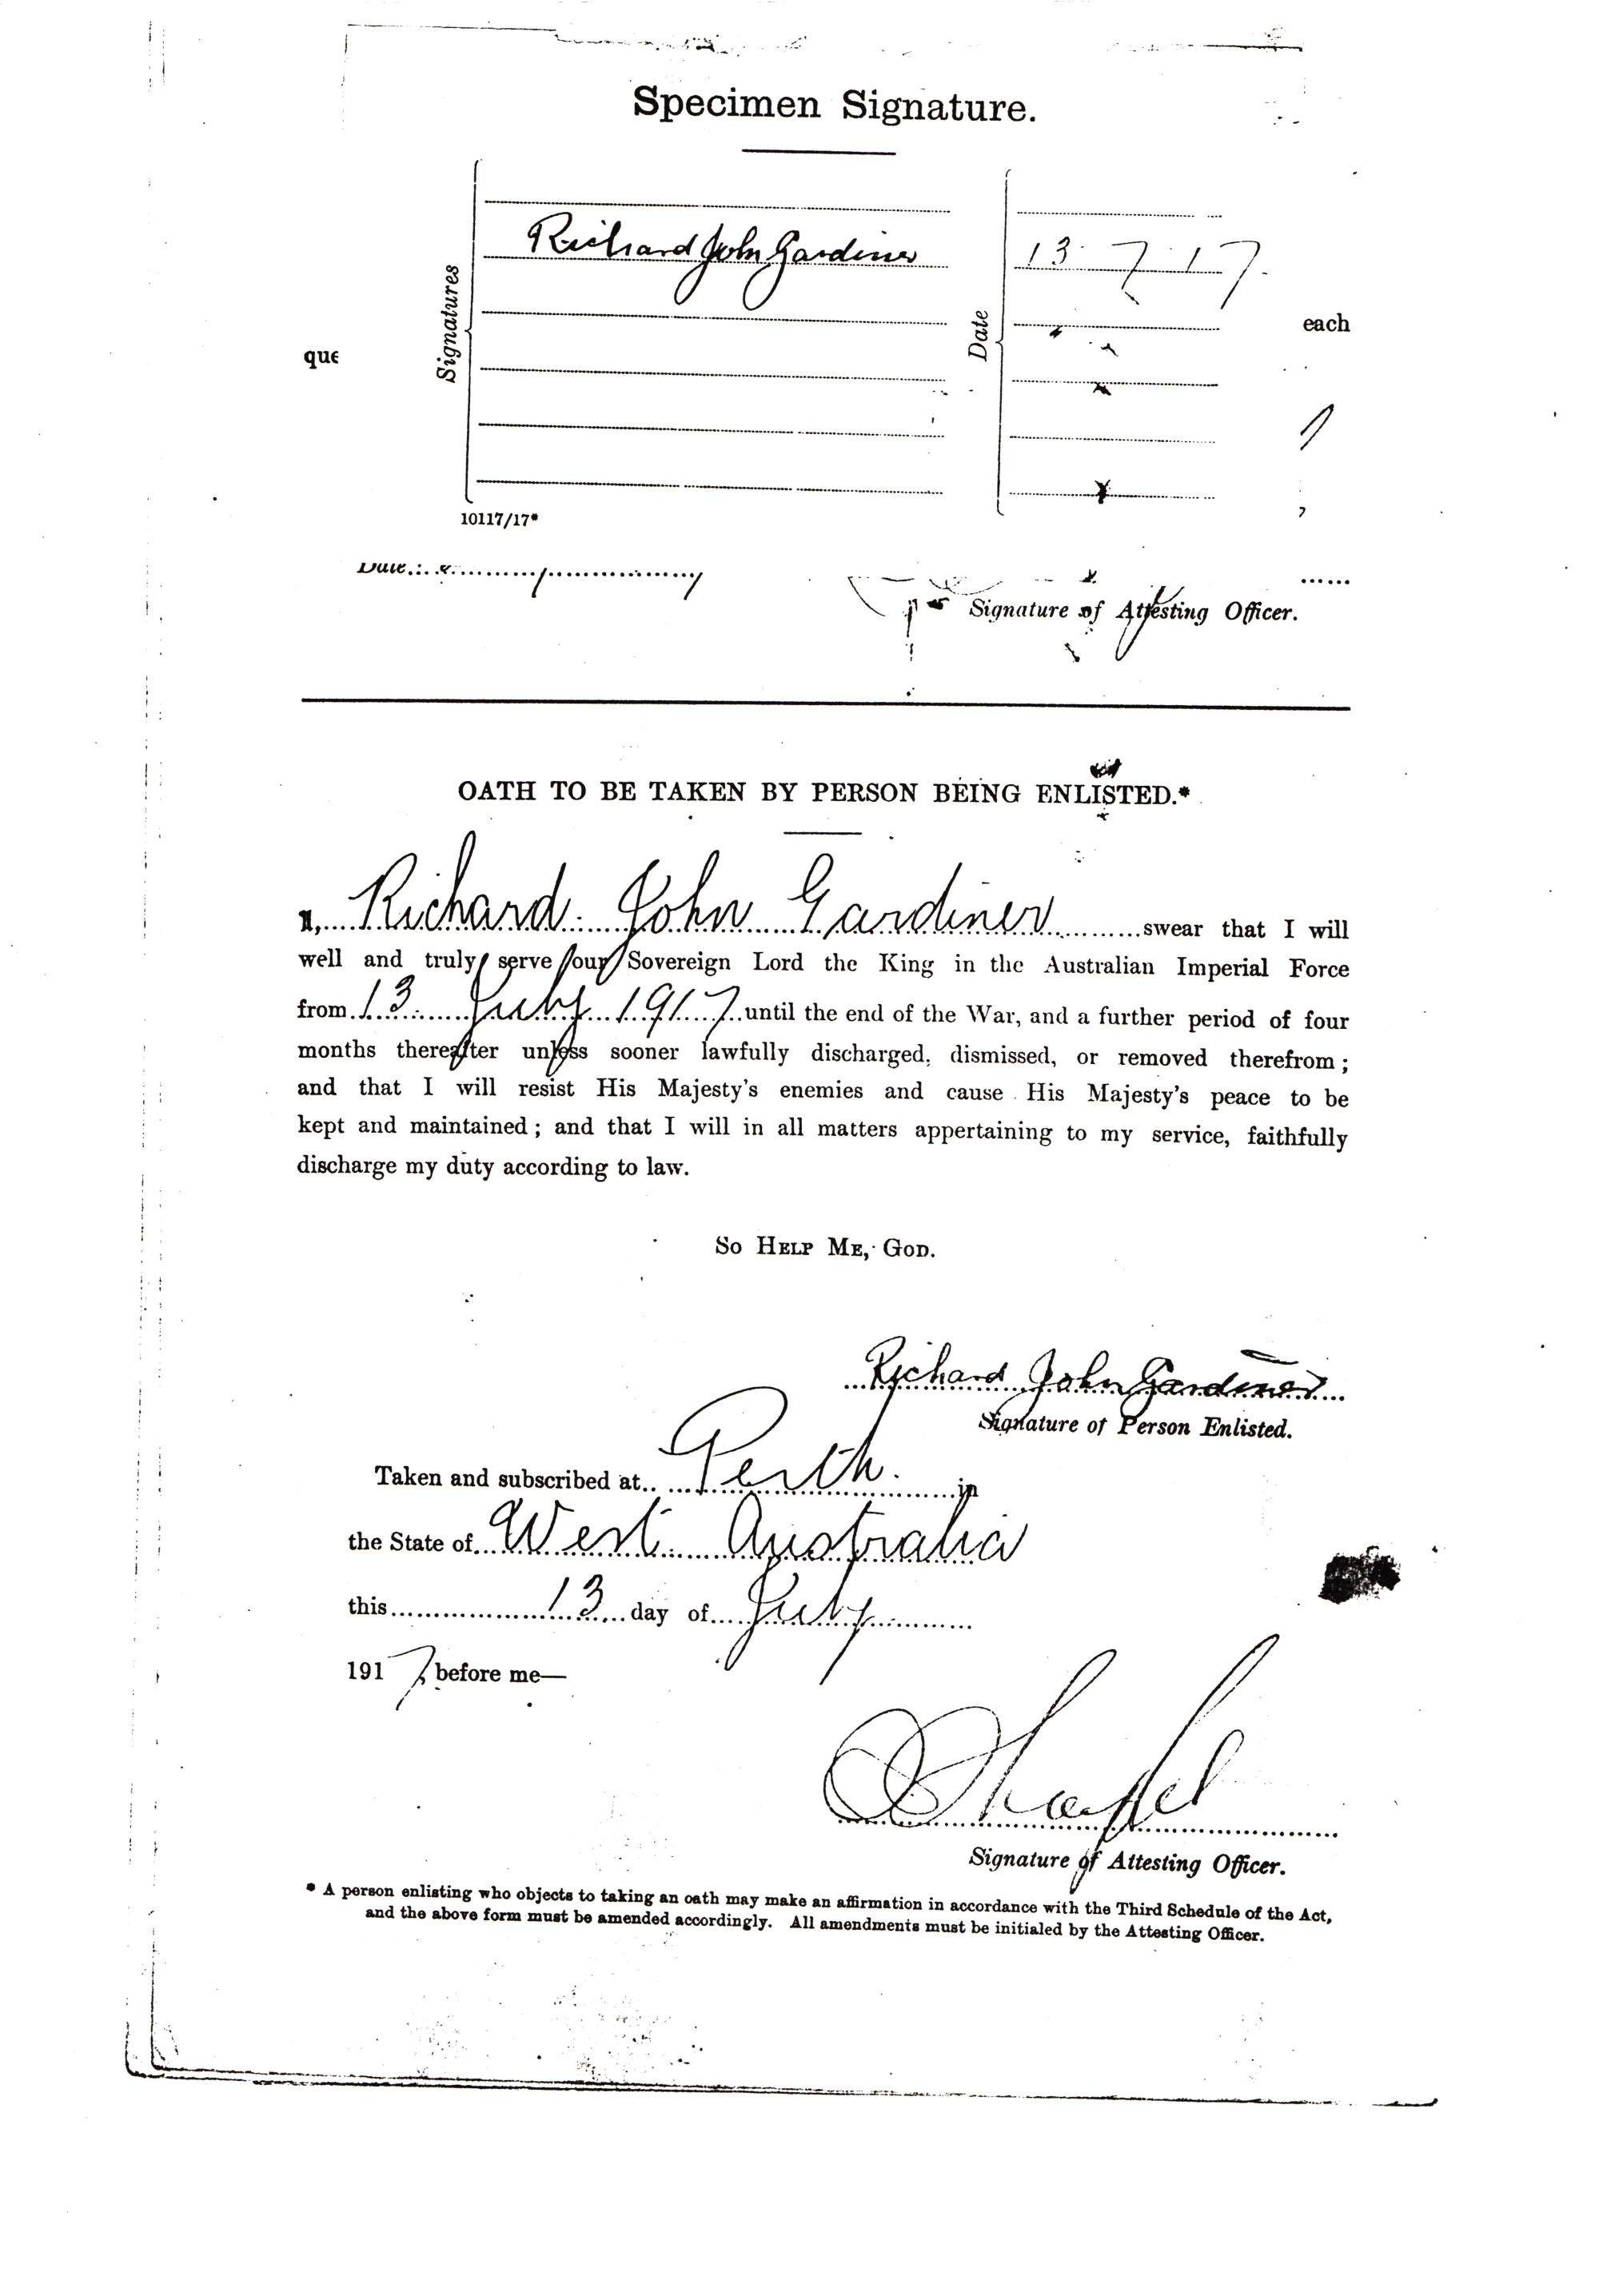 Specimen Signature.
Signatures
Richard John Gardiner
Date
13.7.17.
each
que
10117/17*
Date
Signature of Attesting Officer.
OATH TO BE TAKEN BY PERSON BEING ENLISTED.*
I, Richard John Gardiner swear that I will
well and truly serve our Sovereign Lord the King in the Australian Imperial Force
from 13 July 1917 until the end of the War, and a further period of four
months thereafter unless sooner lawfully discharged, dismissed, or removed therefrom;
and that I will resist His Majesty's enemies and cause His Majesty's peace to be
kept and maintained; and that I will in all matters appertaining to my service, faithfully
discharge my duty according to law.
So Help Me, God.
Richard John Gardiner
Signature of Person Enlisted.
Taken and subscribed at Perth in
the State of West Australia
this 13 day of July
1917 before me—
Signature of Attesting Officer.
* A person enlisting who objects to taking an oath may make an affirmation in accordance with the Third Schedule of the Act,
and the above form must be amended accordingly. All amendments must be initialed by the Attesting Officer.